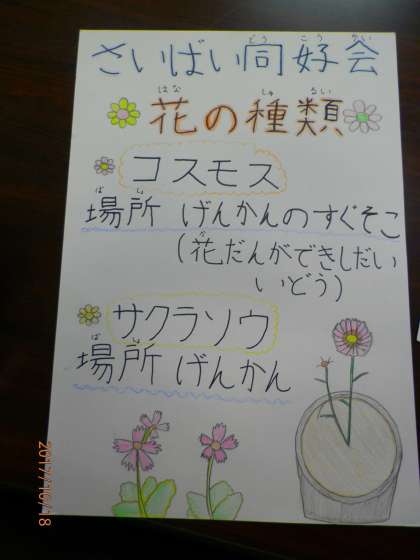 さいばい同好会
どう こう かい
花の種類
はな しゅ るい
コスモス
場所 げんかんのすぐそこ
ば しょ
(花だんができしだい
か
いどう)
サクラソウ
場所 げんかん
ば しょ
2017/10/18